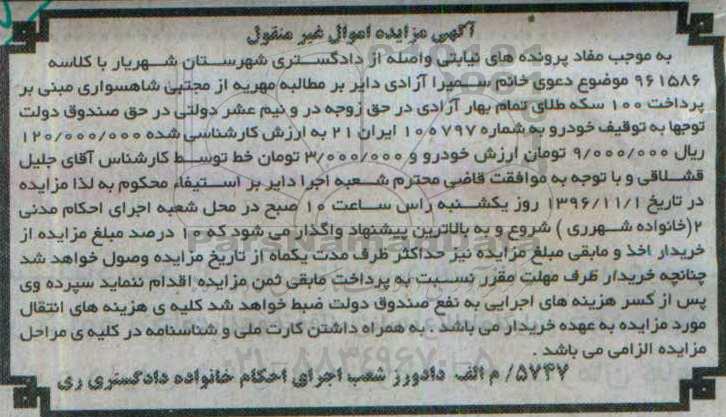 آگهی مزایده اموال غیر منقول
به موجب مفاد پرونده های نیابتی واصله از دادگستری شهرستان شهریار با کلاسه
۹۶۱۵۸۶ موضوع دعوی خانم سمیرا آزادی دایر بر مطالبه مهریه از مجتبی شاهسواری مبنی بر
پرداخت ۱۰۰ سکه طلای تمام بهار آزادی در حق زوجه در و نیم عشر دولتی در حق صندوق دولت
توجها به توقیف خودرو به شماره ۱۰۰۷۹۷ ایران ۲۱ به ارزش کارشناسی شده ۱۲۰/۰۰۰/۰۰۰
ریال ۹/۰۰۰/۰۰۰ تومان ارزش خودرو و ۳/۰۰۰/۰۰۰ تومان خط توسط کارشناس آقای جلیل
قشلاقی و با توجه به موافقت قاضی محترم شعبه اجرا دایر بر استیفاء محکوم به لذا مزایده
در تاریخ ۱۳۹۶/۱۱/۱ روز یکشنبه راس ساعت ۱۰ صبح در محل شعبه اجرای احکام مدنی
۲(خانواده شهرری ) شروع و به بالاترین پیشنهاد واگذار می شود که ۱۰ درصد مبلغ مزایده از
خریدار اخذ و مابقی مبلغ مزایده نیز حداکثر ظرف مدت یکماه از تاریخ مزایده وصول خواهد شد
چنانچه خریدار ظرف مهلت مقرر نسبت به پرداخت مابقی ثمن مزایده اقدام ننماید سپرده وی
پس از کسر هزینه های اجرایی به نفع صندوق دولت ضبط خواهد شد کلیه ی هزینه های انتقال
مورد مزایده به عهده خریدار می باشد . به همراه داشتن کارت ملی و شناسنامه در کلیه ی مراحل
مزایده الزامی می باشد .
۵۷۴۷/ م الف دادورز شعب اجرای احکام خانواده دادگستری ری
ParsNamadData
۰۲۱-۸۸۳۴۹۶۷۰-۵